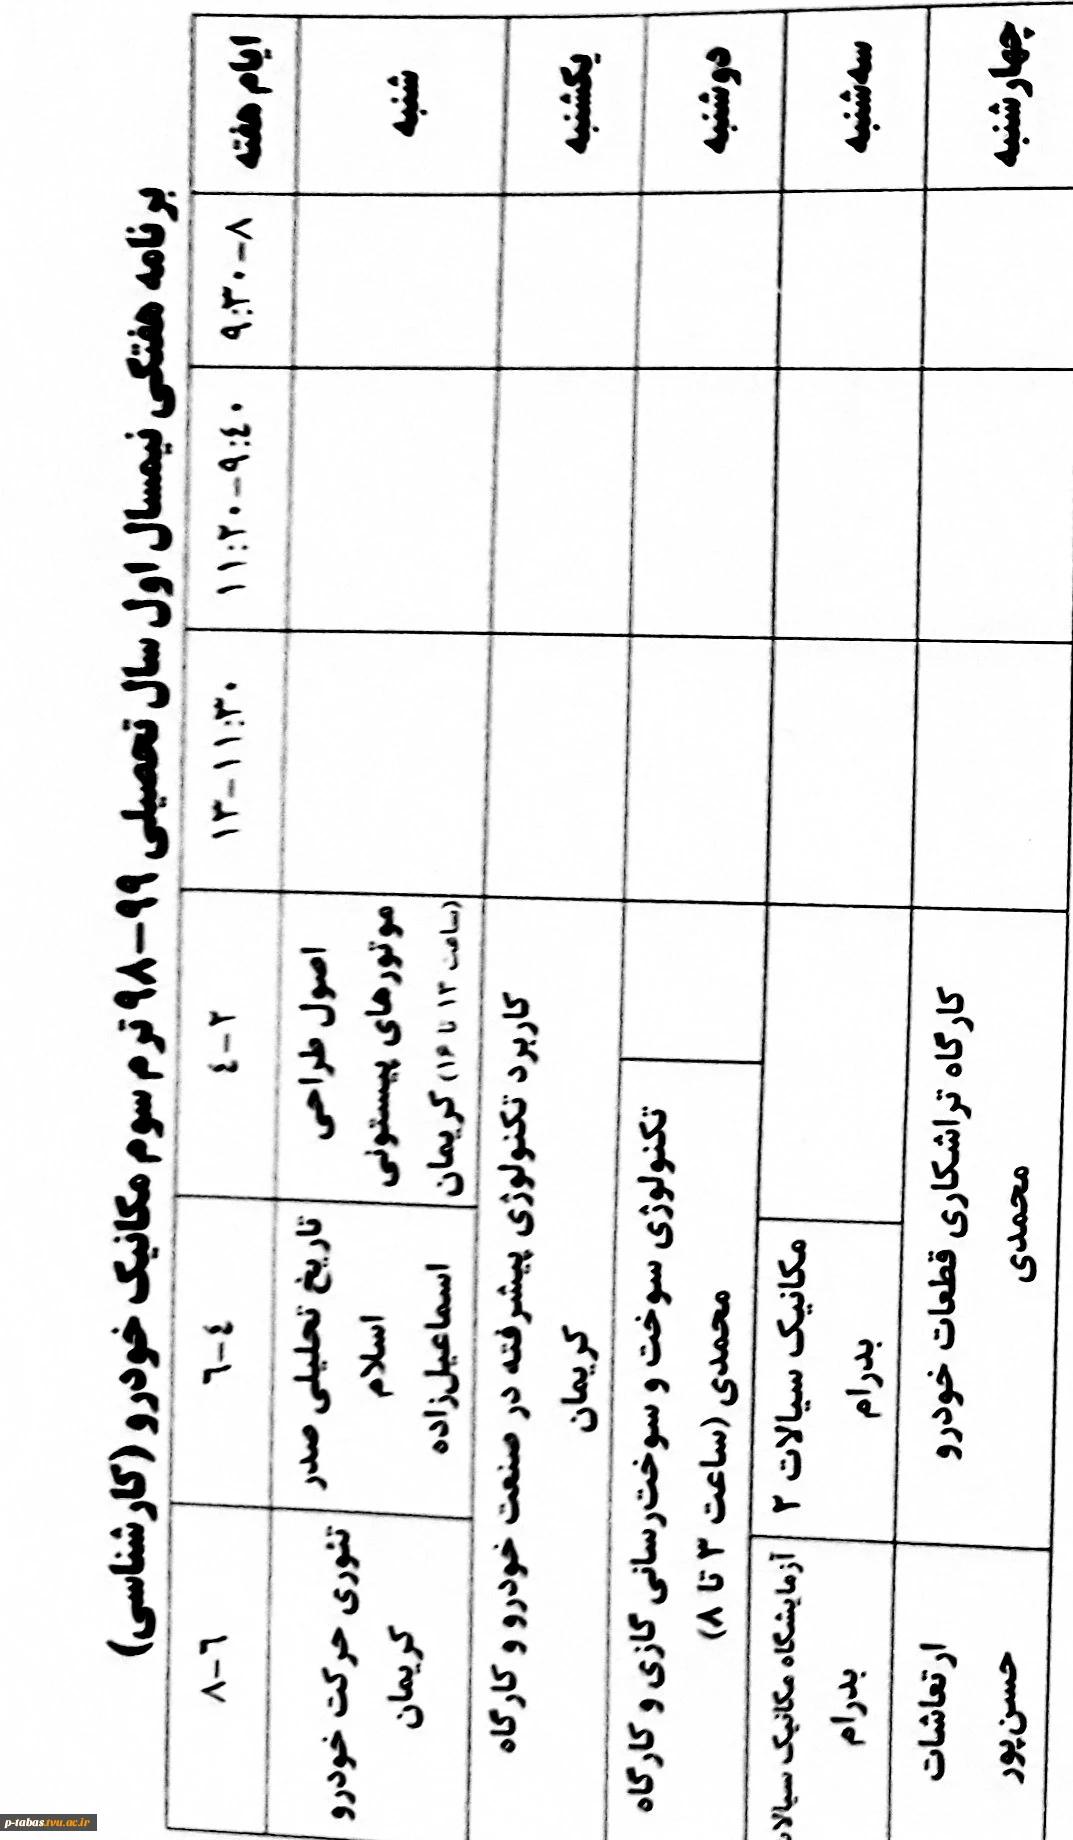 برنامه هفتگی نیمسال اول سال تحصیلی ۹۹-۹۸ ترم سوم مکانیک خودرو (کارشناسی)
ایام هفته
۸-۹:۳۰
۹:٤۰-۱۱:۲۰
۱۱:۳۰-۱۳
۲-٤
٤-٦
٦-۸
شنبه
اصول طراحی
موتورهای پیستونی
(ساعت ۱۳ تا ۱۶) کریمان
تاریخ تحلیلی صدر
اسلام
اسماعیل‌زاده
تئوری حرکت خودرو
کریمان
یکشنبه
کاربرد تکنولوژی پیشرفته در صنعت خودرو و کارگاه
کریمان
دوشنبه
تکنولوژی سوخت و سوخت‌رسانی گازی و کارگاه
محمدی (ساعت ۳ تا ۸)
سه‌شنبه
مکانیک سیالات ۲
بدرام
آزمایشگاه مکانیک سیالات
بدرام
چهارشنبه
کارگاه تراشکاری قطعات خودرو
محمدی
ارتعاشات
حسن‌پور
p-tabas.tvu.ac.ir